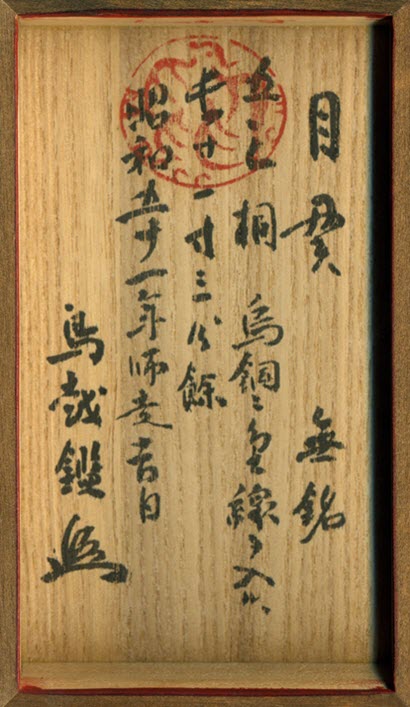 目貫 無銘
桐 烏銅ニ 線ヲ入ル
長サ一寸三分餘
昭和五十一年師走吉日
鳥越鑑